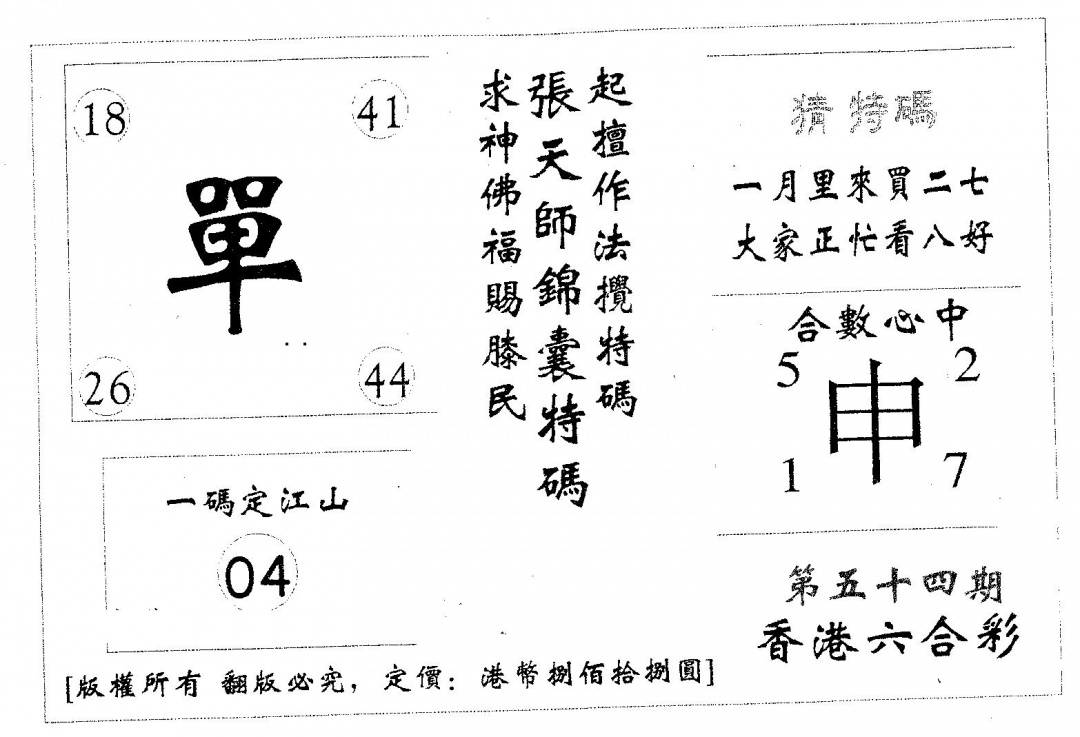 18
41
單
26
44
一碼定江山
04
起擅作法攪特碼
張天師錦囊特碼
求神佛福賜膝民
猜特碼
一月里來買二七
大家正忙看八好
合數心中
5
2
申
1
7
第五十四期
香港六合彩
[版權所有 翻版必究, 定價: 港幣捌佰拾捌圓]